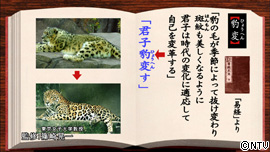 【豹変】
ひょうへん
『易経』より
「豹の毛が季節によって抜け変わり
斑紋も美しくなるように
君子は時代の変化に適応して
自己を変革する」
「君子豹変す」
©NTV